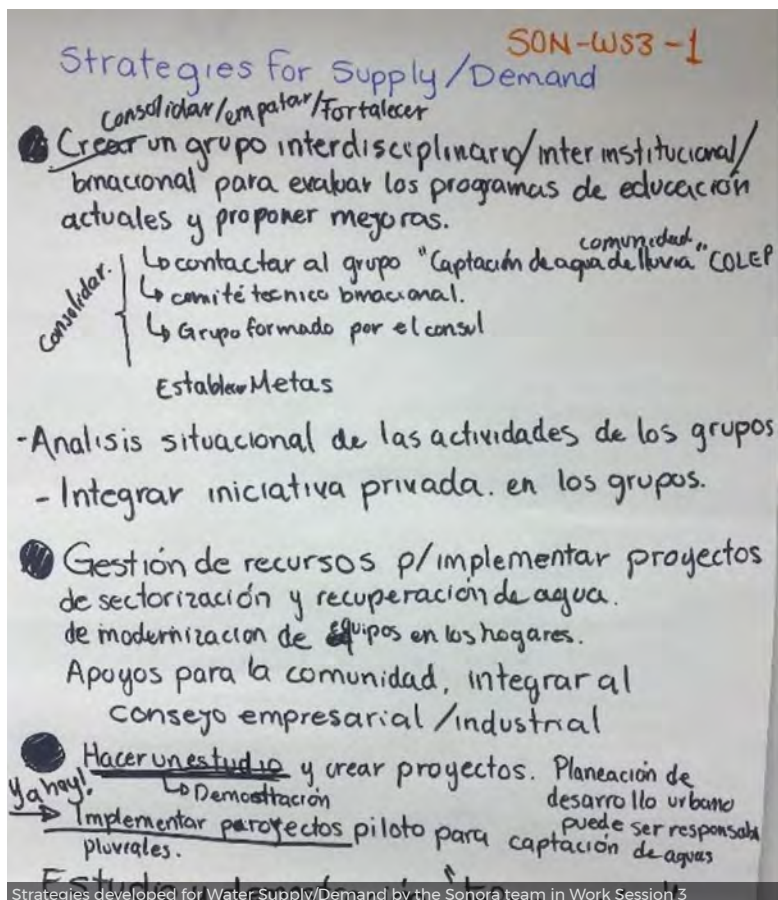 SON-WS3-1
Strategies for Supply/Demand
Consolidar/empatar/Fortalecer
Crear un grupo interdisciplinario/interinstitucional/
binacional para evaluar los programas de educación
actuales y proponer mejoras.
comunidad
Consolidar. contactar al grupo "Captación de agua de lluvia" COLEP
comité tecnico binacional.
Grupo formado por el consul
Establecer Metas
-Analisis situacional de las actividades de los grupos
- Integrar iniciativa privada. en los grupos.
Gestión de recursos p/implementar proyectos
de sectorización y recuperación de agua.
de modernizacion de equipos en los hogares.
Apoyos para la comunidad, integrar al
consejo empresarial/industrial
Hacer un estudio y crear proyectos. Planeación de
Ya hay! Demostración desarrollo urbano
Implementar paroyectos piloto para captación de aguas puede ser responsabl
pluviales.
Strategies developed for Water Supply/Demand by the Sonora team in Work Session 3